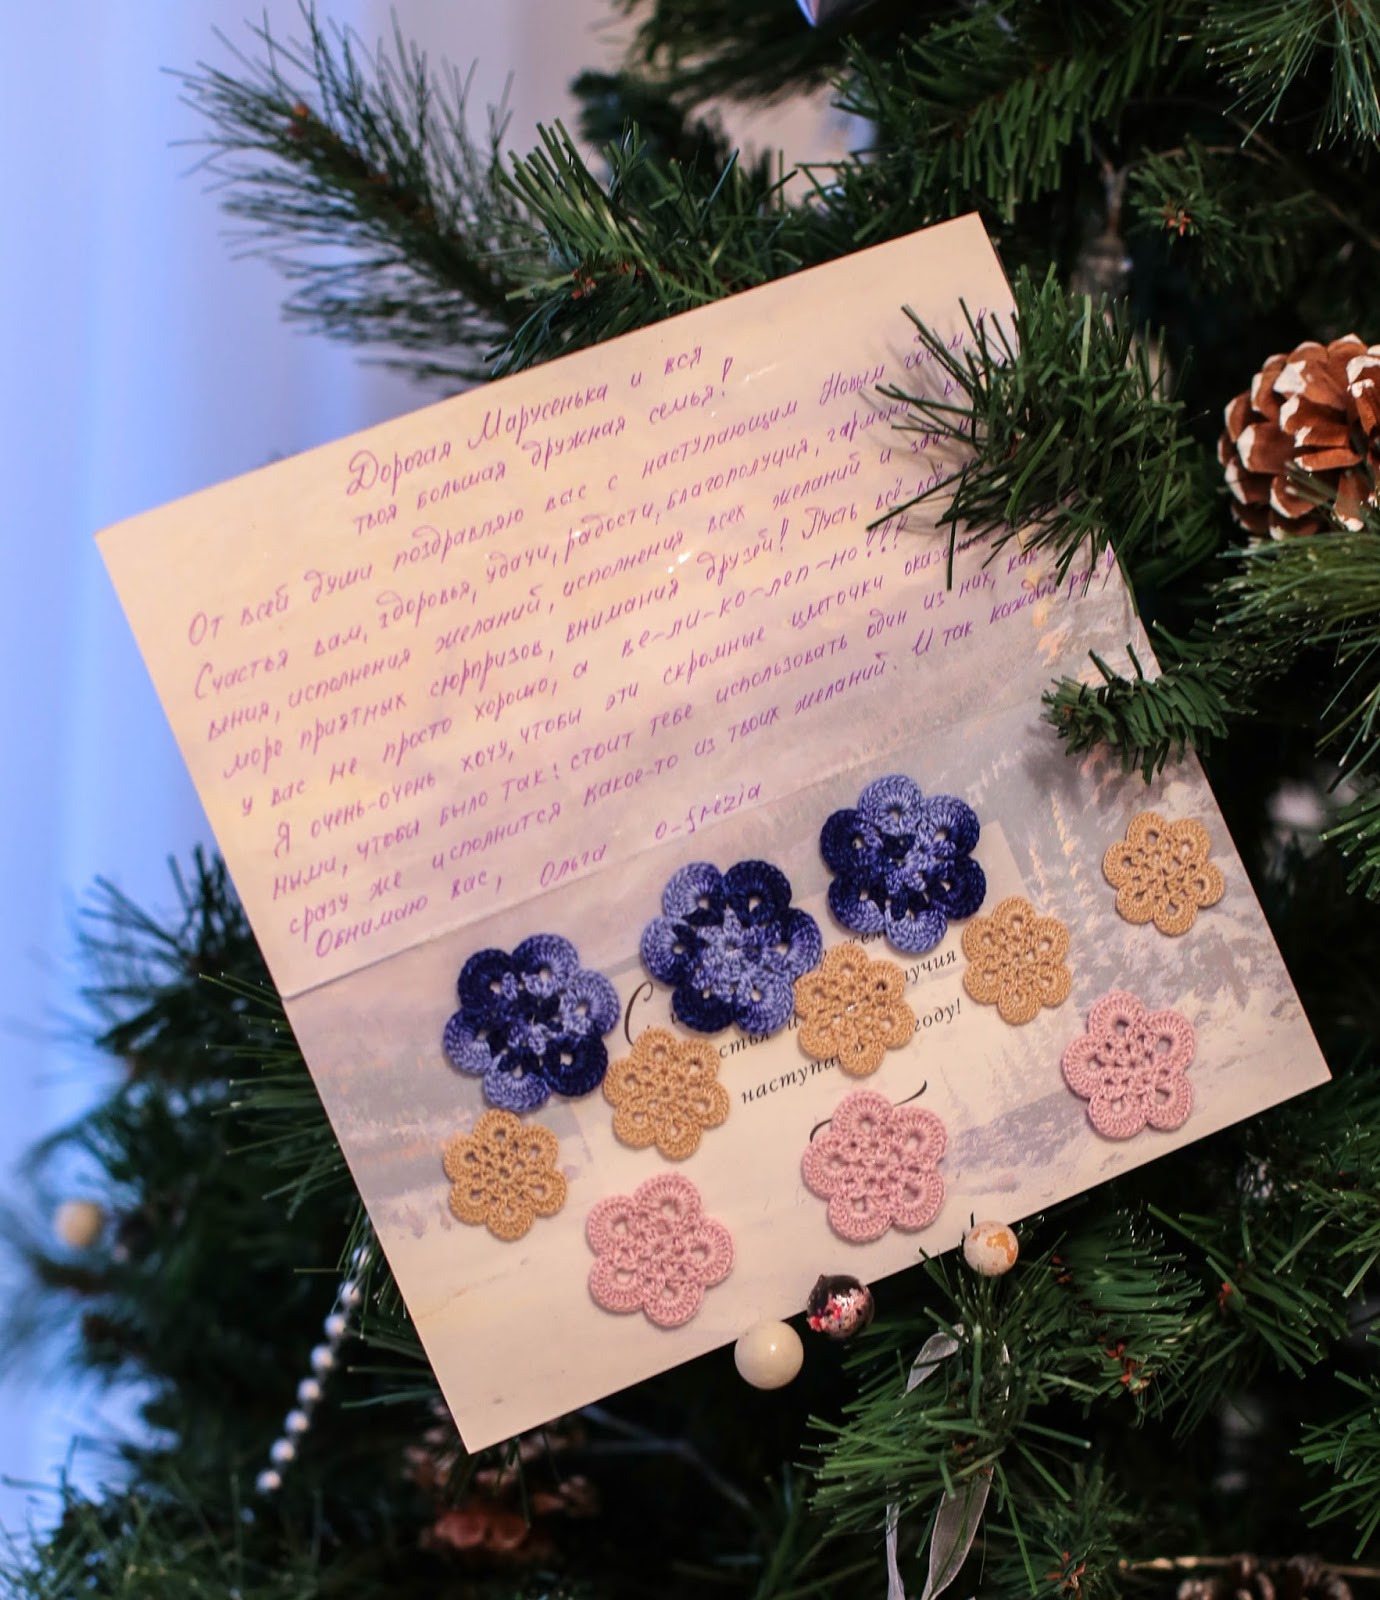 Дорогая Марусенька и вся
твоя большая дружная семья!
От всей души поздравляю вас с наступающим Новым годом и
Счастья вам, здоровья, удачи, радости, благополучия,
вения, исполнения желаний, исполнения всех желаний и
море приятных сюрпризов, внимания друзей! Пусть всё-всё
у вас не просто хорошо, а ве-ли-ко-леп-но!!!
Я очень-очень хочу, чтобы эти скромные цветочки
ными, чтобы было так: стоит тебе использовать один из них, как
сразу же исполнится какое-то из твоих желаний. И так каждый раз
Обнимаю вас, Ольга o-frezia
году!